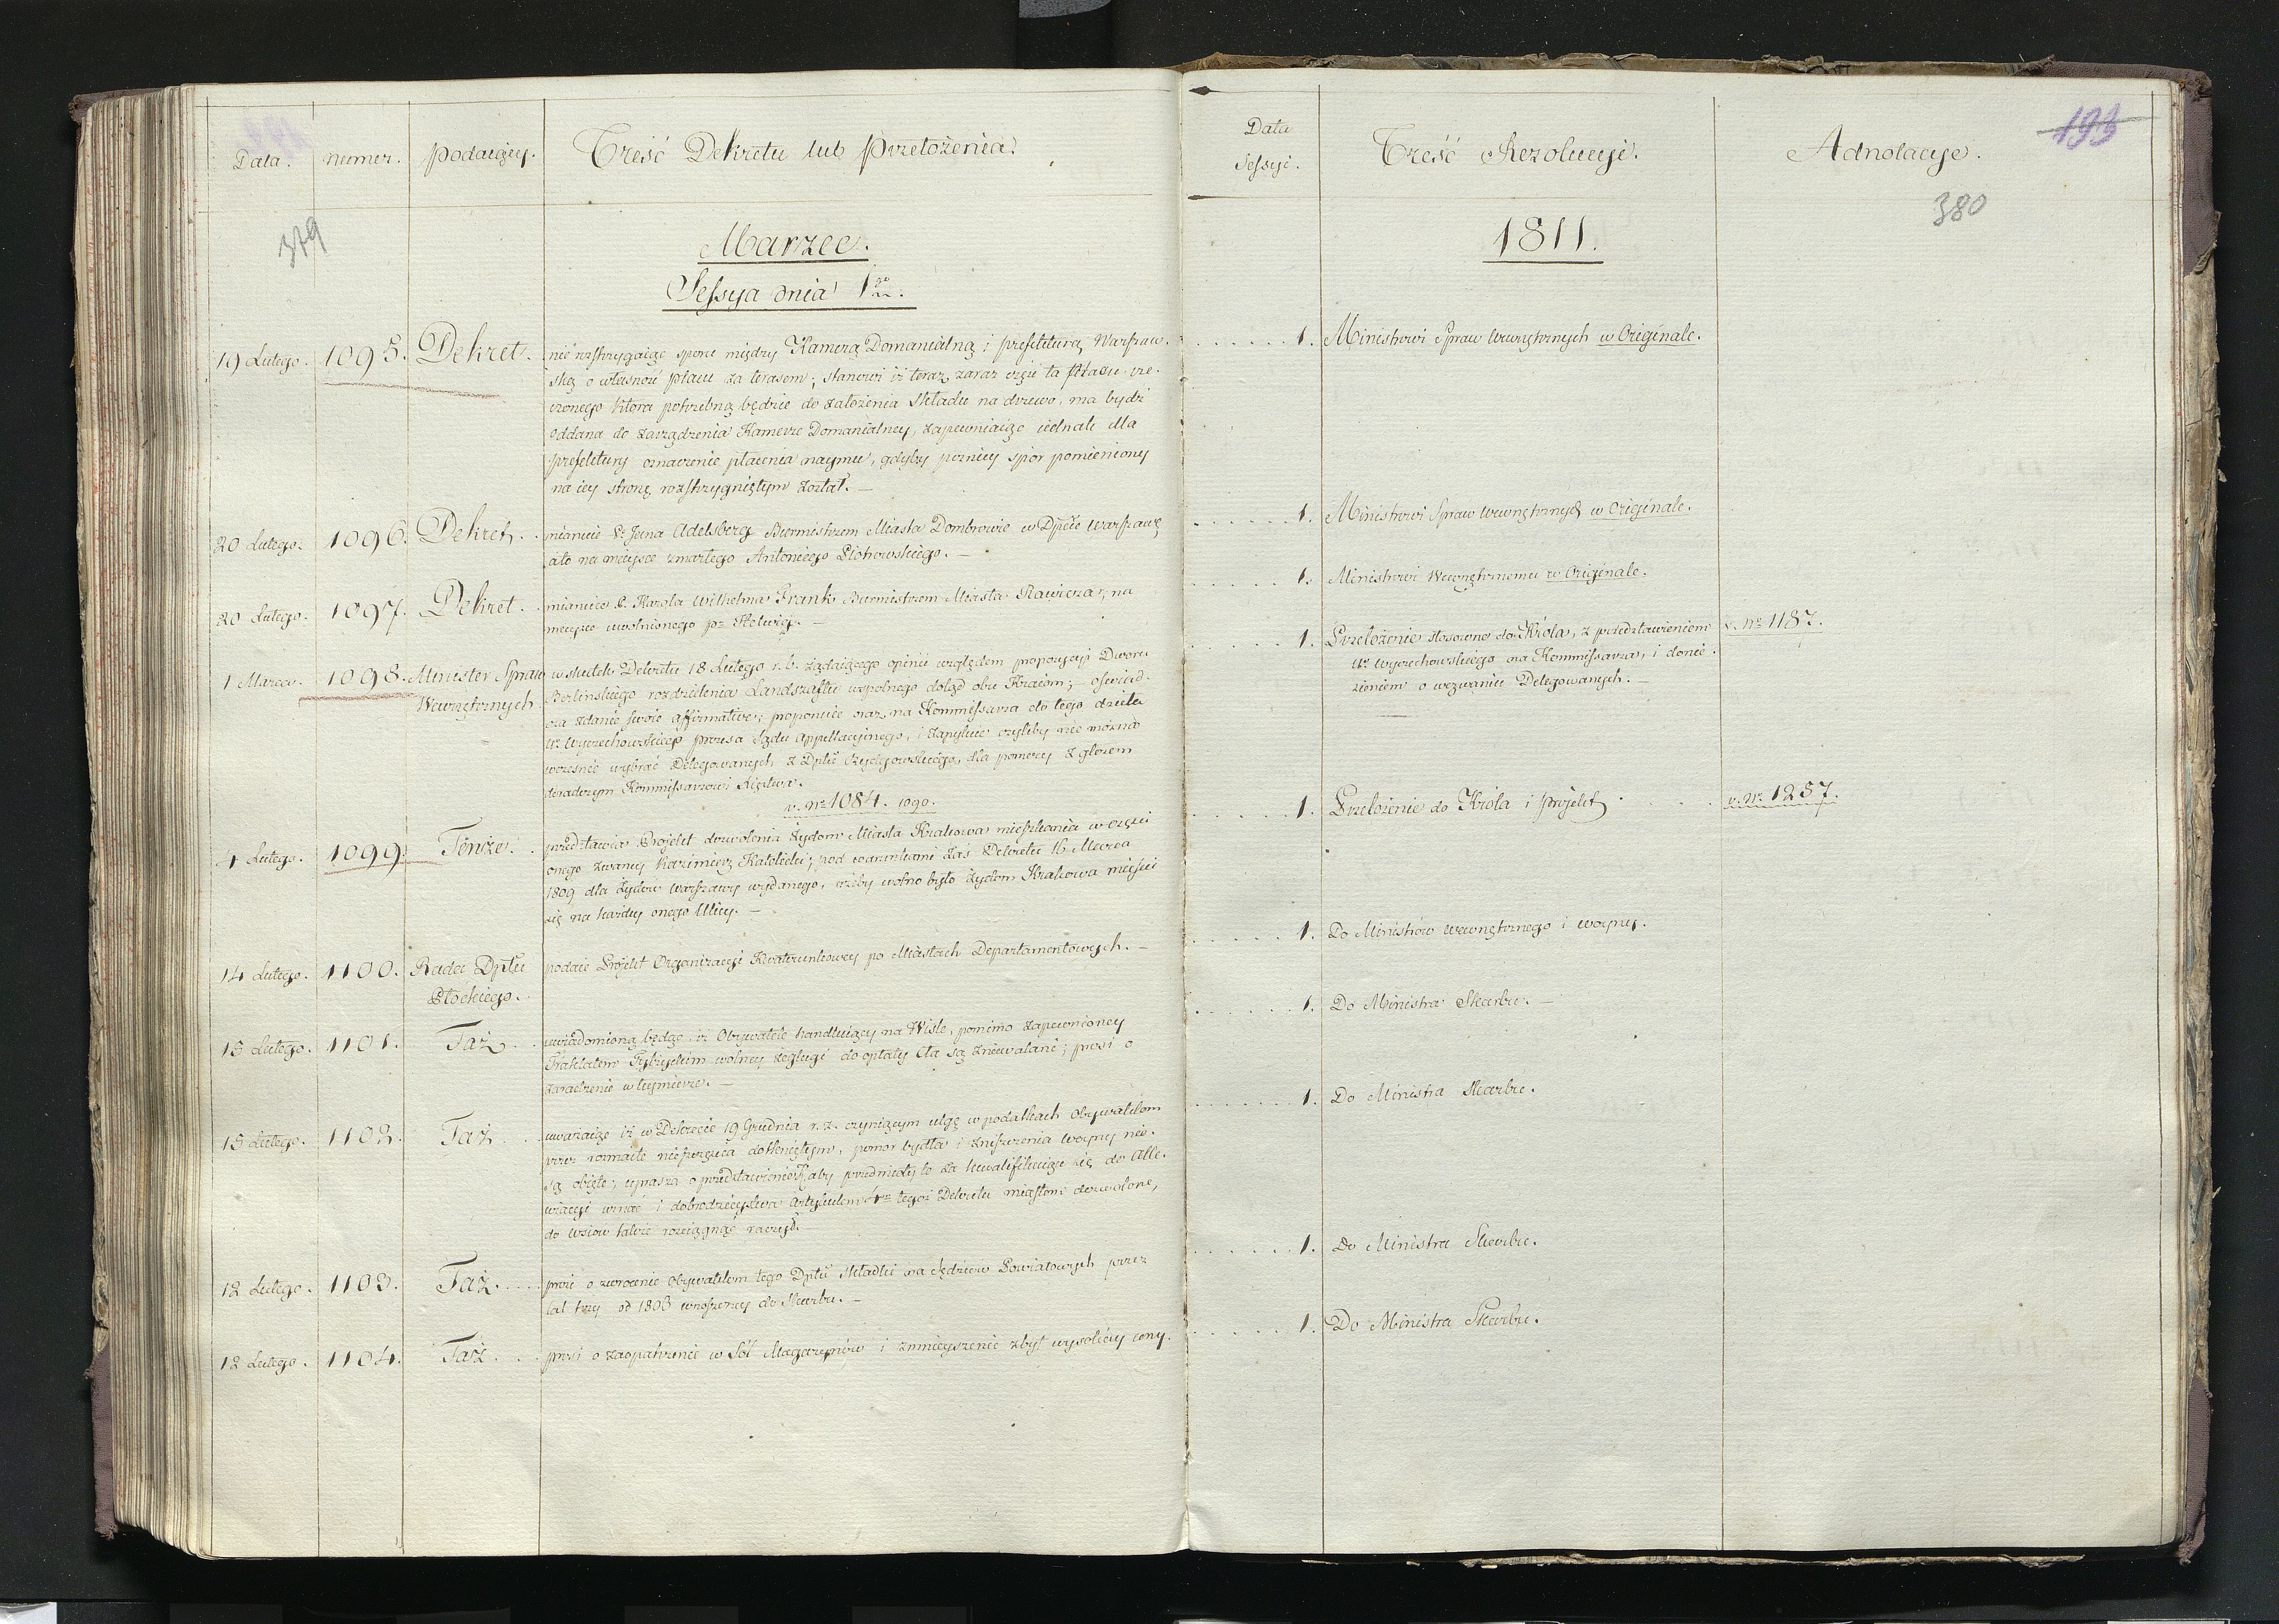 Data. numer. podaiący. Treść Dekretu lub Przełożenia.
379
Marzec.
Sessya dnia 1go
19 Lutego. 1095. Dekret. nie rozstrzygaiąc sporu między Kamerą Domanialną i prefekturą Warszaw-
ską o własność placu za terasem; stanowi iż teraz zaraz część ta placu rze-
czonego która potrzebną będzie do założenia składu na drzewo, ma bydź
oddana do zarządzenia Kamerze Domanialney, zapewniaiąc iednak dla
prefektury oznaczenie płacenia naymu, gdyby pozniey spor pomieniony
na iey stronę rozstrzygniętym został. —
20 Lutego. 1096. Dekret. mianuie P. Jana Adelsberg Burmistrzem Miasta Dombrowie w Dpcie Warszaws
a to na mieysce zmarłego Antoniego Piotrowskiego. —
20 Lutego. 1097. Dekret. mianuie P. Karola Wilhelma Frank Burmistrzem Miasta Rawicza, na
mieysce uwolnionego pa Helwig. —
1 Marca. 1098. Minister Spraw w skutek Dekretu 18 Lutego r. b. żądaiącego opinii względem propozycyi Dworu
Wewnętrznych. Berlinskiego rozdzielenia Landszaftu wspolnego dotąd obu Kraiom; — oświad-
cza zdanie swoie affirmative; proponuie oraz na Kommissarza do tego dzieła
Ur. Wyczechowskiego prezesa Sądu Appellacyinego, i zapytuie czyliby nie można
wcześnie wybrać Delegowanych z Dptu Bydgowskiego, dla pomocy z głosem
doradczym Kommissarzowi Xięstwa.
v. No 1084. 1090.
4 Lutego. 1099. Tenże. przedstawia Projekt dozwolenia żydom Miasta Krakowa mieszkania w części
onego zwaney Kazimierz Katolicki; pod warunkami zaś Dekretu 16 Marca
1809 dla żydów Warszawy wydanego, ażeby wolno było żydom Krakowa mieścić
się na każdey onego Ulicy. —
14 Lutego. 1100. Rada Dptu podaie Projekt Organizacyi Kwaterunkowey po Miastach Departamentowych. —
Płockiego.
15 Lutego. 1101. Taż. uwiadomioną będąc, iż Obywatele handluiący na Wisle, pomimo zapewnioney
Traktatem Tylżyckim wolney żeglugi do opłaty Cła są zniewalani; prosi o
zaradzenie w teymierze. —
15 Lutego. 1102. Taż. uważaiąc iż w Dekrecie 19 Grudnia r. z. czyniącym ulgę w podatkach obywatelom
przez rozmaite nieszczęścia dotkniętym, pomor bydła i zniszczenia woyny nie
są obięte; uprasza o przedstawienie aby przedmioty te za kwalifikuiące się do Alle-
wiacyi uznać i dobrodzieystwa Artykułem 4m tegoż Dekretu miastom dozwolone,
do wsiow także rozciągnąć raczył.
12 Lutego. 1103. Taż. prosi o zwrocenie obywatelom tego Dptu składki na sędziow Powiatowych przez
lat trzy od 1808 wnoszoney do Skarbu. —
12 Lutego. 1104. Taż. prosi o zaopatrzenie w Sól Magazynów i zmnieyszenie zbyt wysokiey ceny.
Data
Sessyi. Treść Rezolucyi. Adnotacye.
193
380
1811.
1. Ministrowi Spraw Wewnętrznych w Originale.
1. Ministrowi Spraw Wewnętrznych w Originale.
1. Ministrowi Wewnętrznemu w Originale.
1. Przełożenie stosowne do Króla, z przedstawieniem v. No 1187.
Ur. Wyczechowskiego na Kommissarza, i donie-
sieniem o wezwaniu Delegowanych. —
1. Przełożenie do Króla i projekt v. No 1257.
1. Do Ministrów wewnętrznego i woyny.
1. Do Ministra Skarbu. —
1. Do Ministra Skarbu.
1. Do Ministra Skarbu.
1. Do Ministra Skarbu.